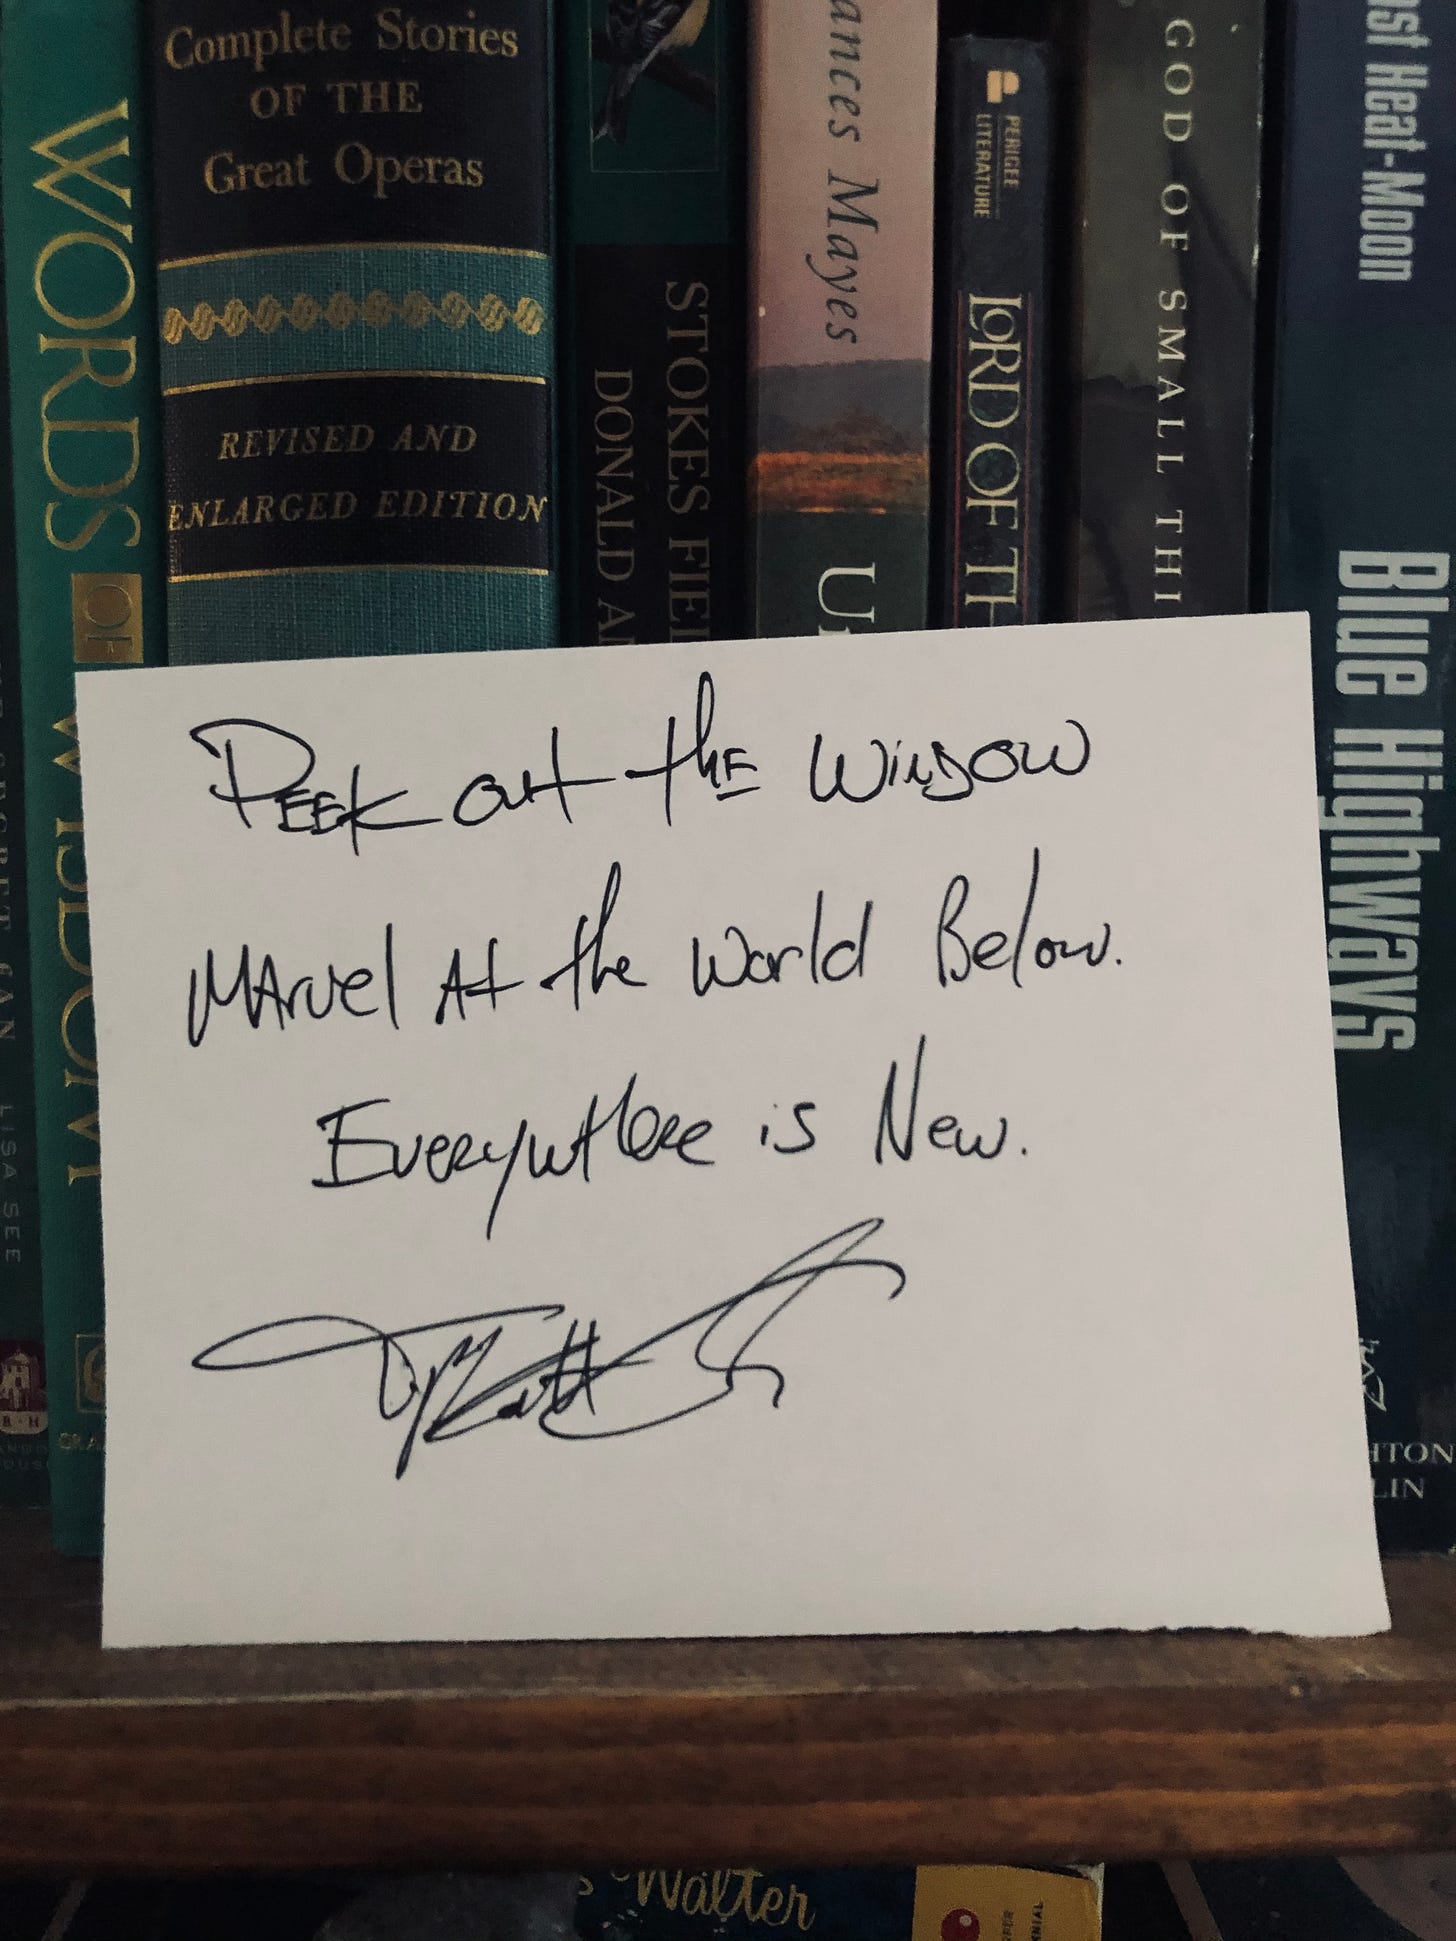 WORDS
OF
WISDOM
Complete Stories
OF THE
Great Operas
REVISED AND
ENLARGED EDITION
STOKES FIEL
DONALD A
ances Mayes
U
PERIGEE
LITERATURE
LORD OF TH
GOD OF SMALL THI
ast Heat-Moon
Blue Highways
HTON
LIN
LISA SEE
Peek out the Window
Marvel At the World Below.
Everywhere is New.
Walter